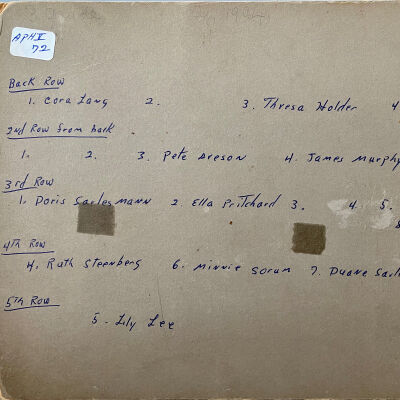 APHI
72
Back Row
1. Cora Lang 2. 3. Thresa Holder 4
2nd Row from back
1. 2. 3. Pete Areson 4. James Murphy
3rd Row
1. Doris Sarles Mann 2 Ella Pritchard 3. 4. 5.
4th Row
4. Ruth Steenberg 6. Minnie Sorum 7. Duane Sarl
5th Row
5. Lily Lee